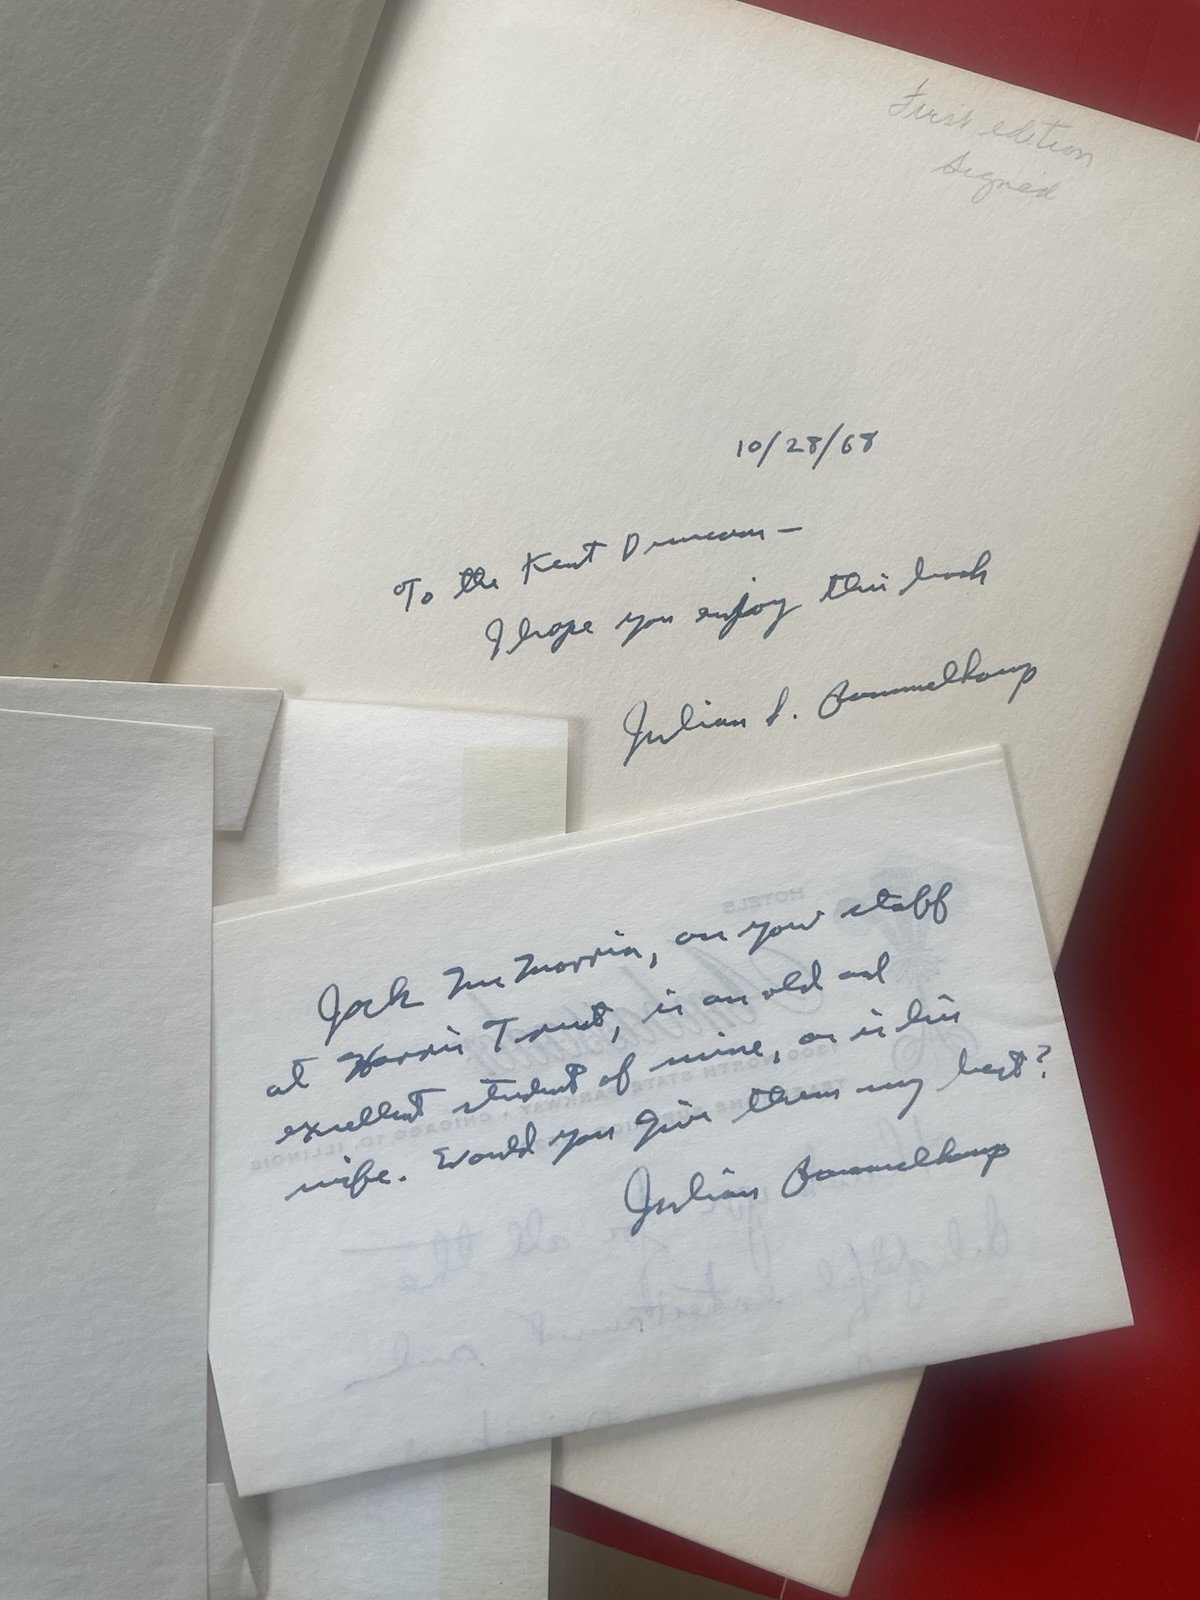 First edition
signed
10/28/68
To the Kent Duncans —
I hope you enjoy this book
Julian S. Bommelkamp
Jack McMorris, on your staff
at Harris Trust, is an old and
excellent student of mine, as is his
wife. Would you give them my best?
Julian Bommelkamp
HOTELS
Ambassador
1300 NORTH STATE PARKWAY • CHICAGO 10, ILLINOIS
for all the
delightful entertainment and